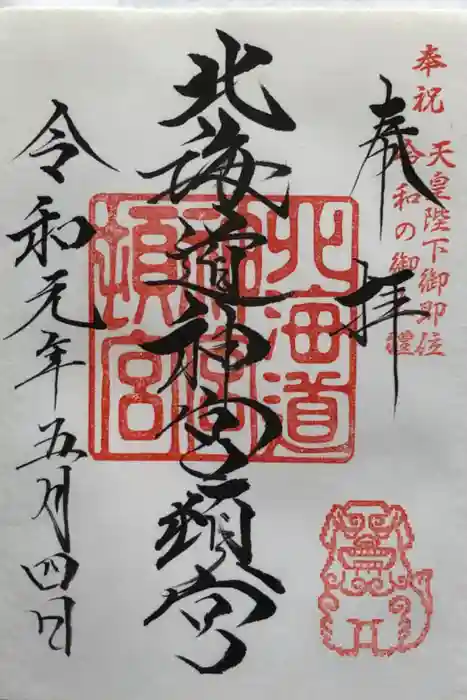 奉祝
天皇陛下御即位
令和の御
奉拝
北海道神宮頓宮
北海道
神宮
頓宮
令和元年五月四日